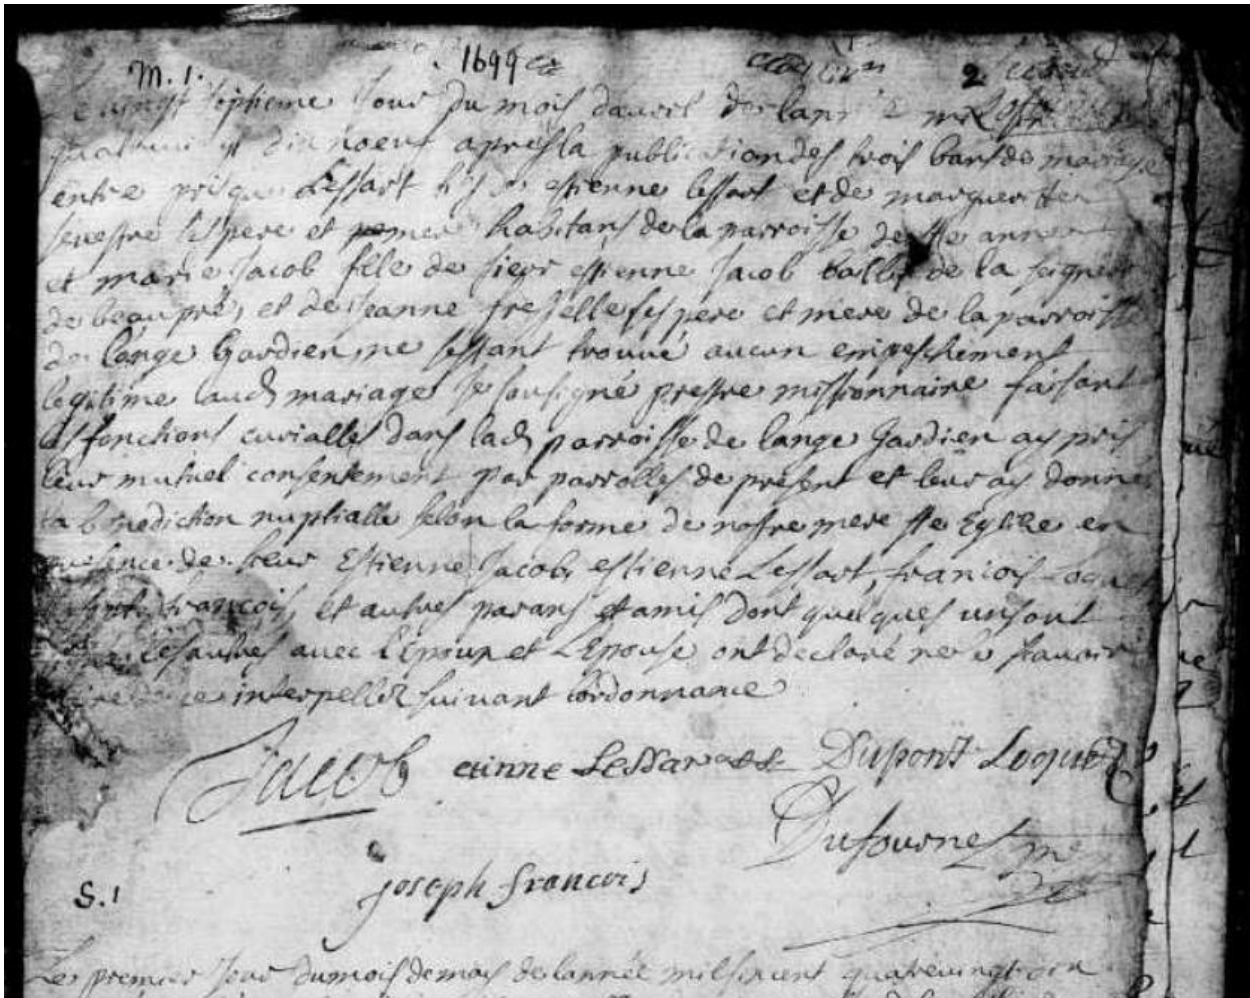 M. 1. 1699 2
vingt septieme Jour du mois davril de lann mil
dix noeuf apres la publication des trois bans de mariage
entre prisque Lessart fils de estienne lessart et de margueritte
sevestre ses pere et mere habitans de la parroisse de Ste anne
et marie Jacob fille de sieur estienne Jacob baillif de la seigneu
de beaupré, et de Jeanne fresselle ses pere et mere de la parroisse
de lange Gardien, ne sestant trouvé aucun empeschement
legitime aud mariage Je sousigné prestre missionnaire faisant
les fonctions curialles dans lad parroisse de lange Gardien ay pris
leur mutuel consentement par parrolles de present et leur ay donné
la benediction nuptialle selon la forme de nostre mere Ste Eglise en
presence de sieur Estienne Jacob, estienne Lessart, francois Loquet
francois, et autres parans et amis dont quelques uns ont
les autres avec L'Epoux et L'Epouse ont declaré ne scavoir
de ce interpellez suivant lordonnance
Jacob etinne Lessart Dupont Loquet
Dufournel
joseph francois
S. 1
Le premier Jour du mois de mars de lannée mil six cent quatre vingt